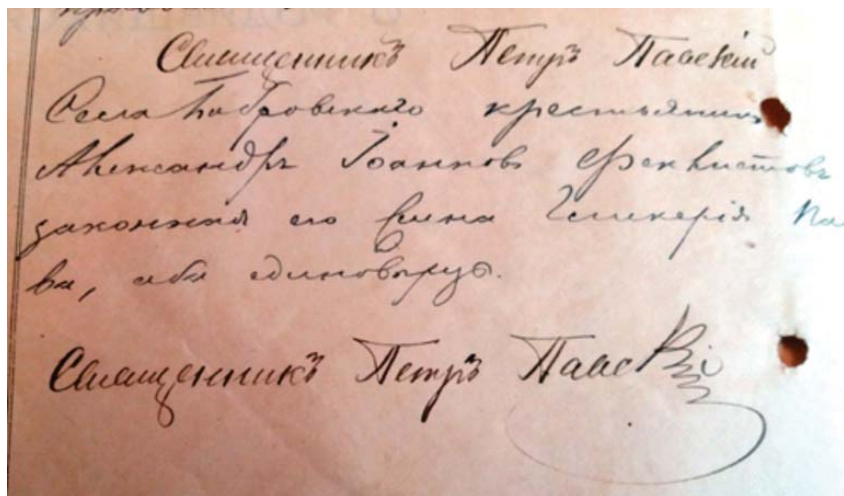 Священникъ Петръ Павскій
Села Бобровскаго крестьянинъ
Александръ Іоанновъ Феклистовъ
законная его жена Гликерія Па
ва, оба единоверцы.
Священникъ Петръ Павскій